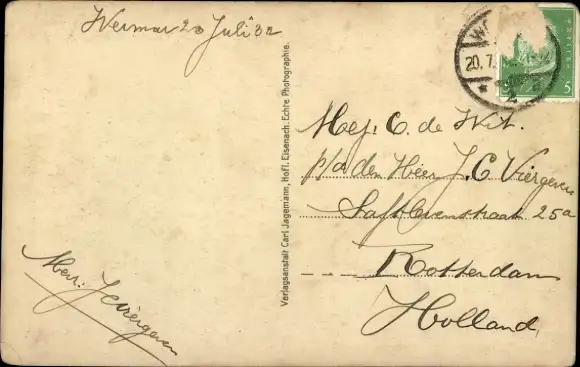 Weimar 20 Juli 32
20.7.
2
5
Mej. C. de Wit.
p/a den Heer J. C Viergever
Saftlevenstraat 25a
Rotterdam
Holland
Mevr. J C Viergever
Verlagsanstalt Carl Jagemann, Hofl. Eisenach. Echte Photographie.